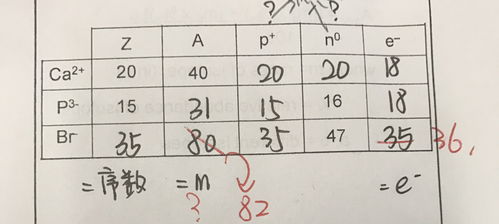 ? ?
Z A p⁺ n⁰ e⁻
Ca²⁺ 20 40 20 20 18
P³⁻ 15 31 15 16 18
Br 35 80 35 47 35 36,
=序数 =m =e⁻
? 82